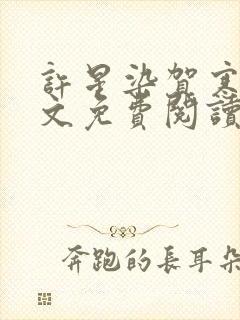 許星染賀寒
文免費閱讀
奔跑的長耳朵